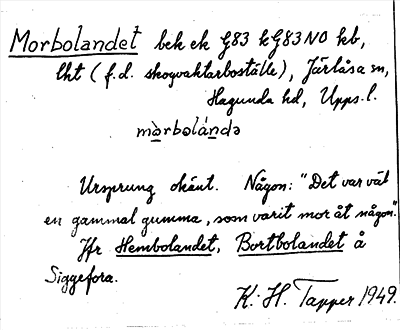 Morbolandet bek ek G83 k G83NO kb,
lht (f.d. skogvaktarboställe), Järlåsa sn,
Hagunda hd, Upps. l.
mòrbolánde
Ursprung okänt. Någon: "Det var väl
en gammal gumma, som varit mor åt någon".
Jfr Hembolandet, Bortbolandet å
Siggefora.
K. H. Tapper 1949.